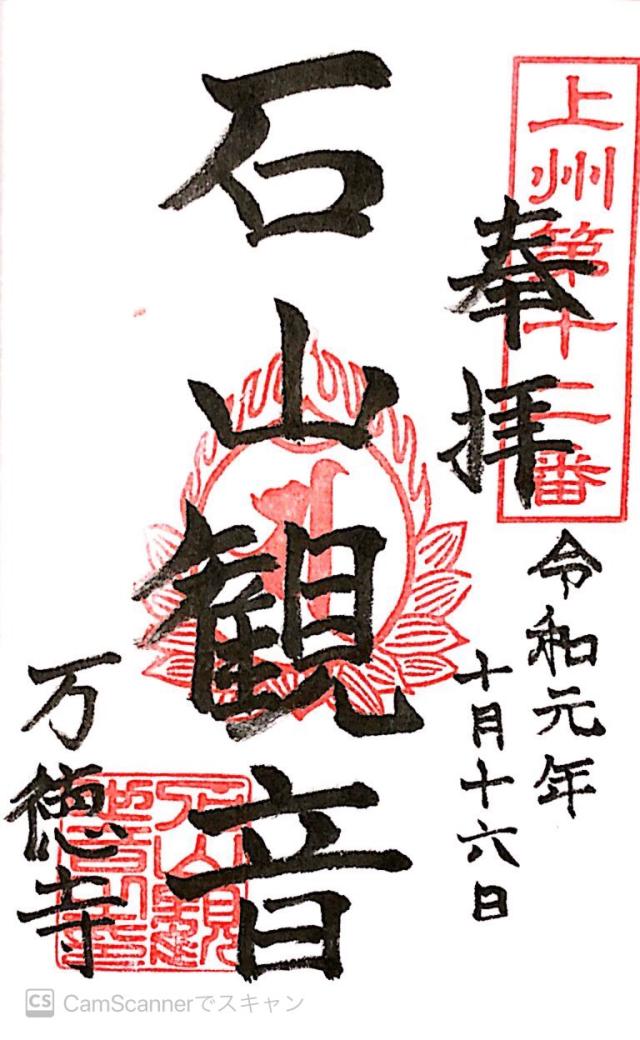 上州第十二番
奉拝
令和元年
十月十六日
石山観音
万徳寺
CS CamScannerでスキャン